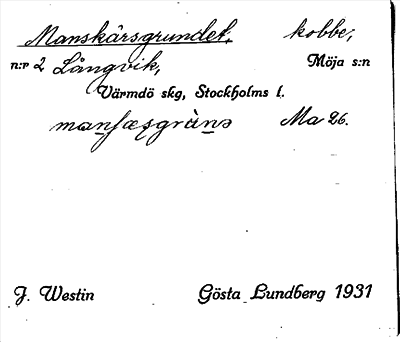 Manskärsgrundet, kobbe,
n:r 2 Långvik, Möja s:n
Värmdö skg, Stockholms l.
Ma 26.
J. Westin Gösta Lundberg 1931